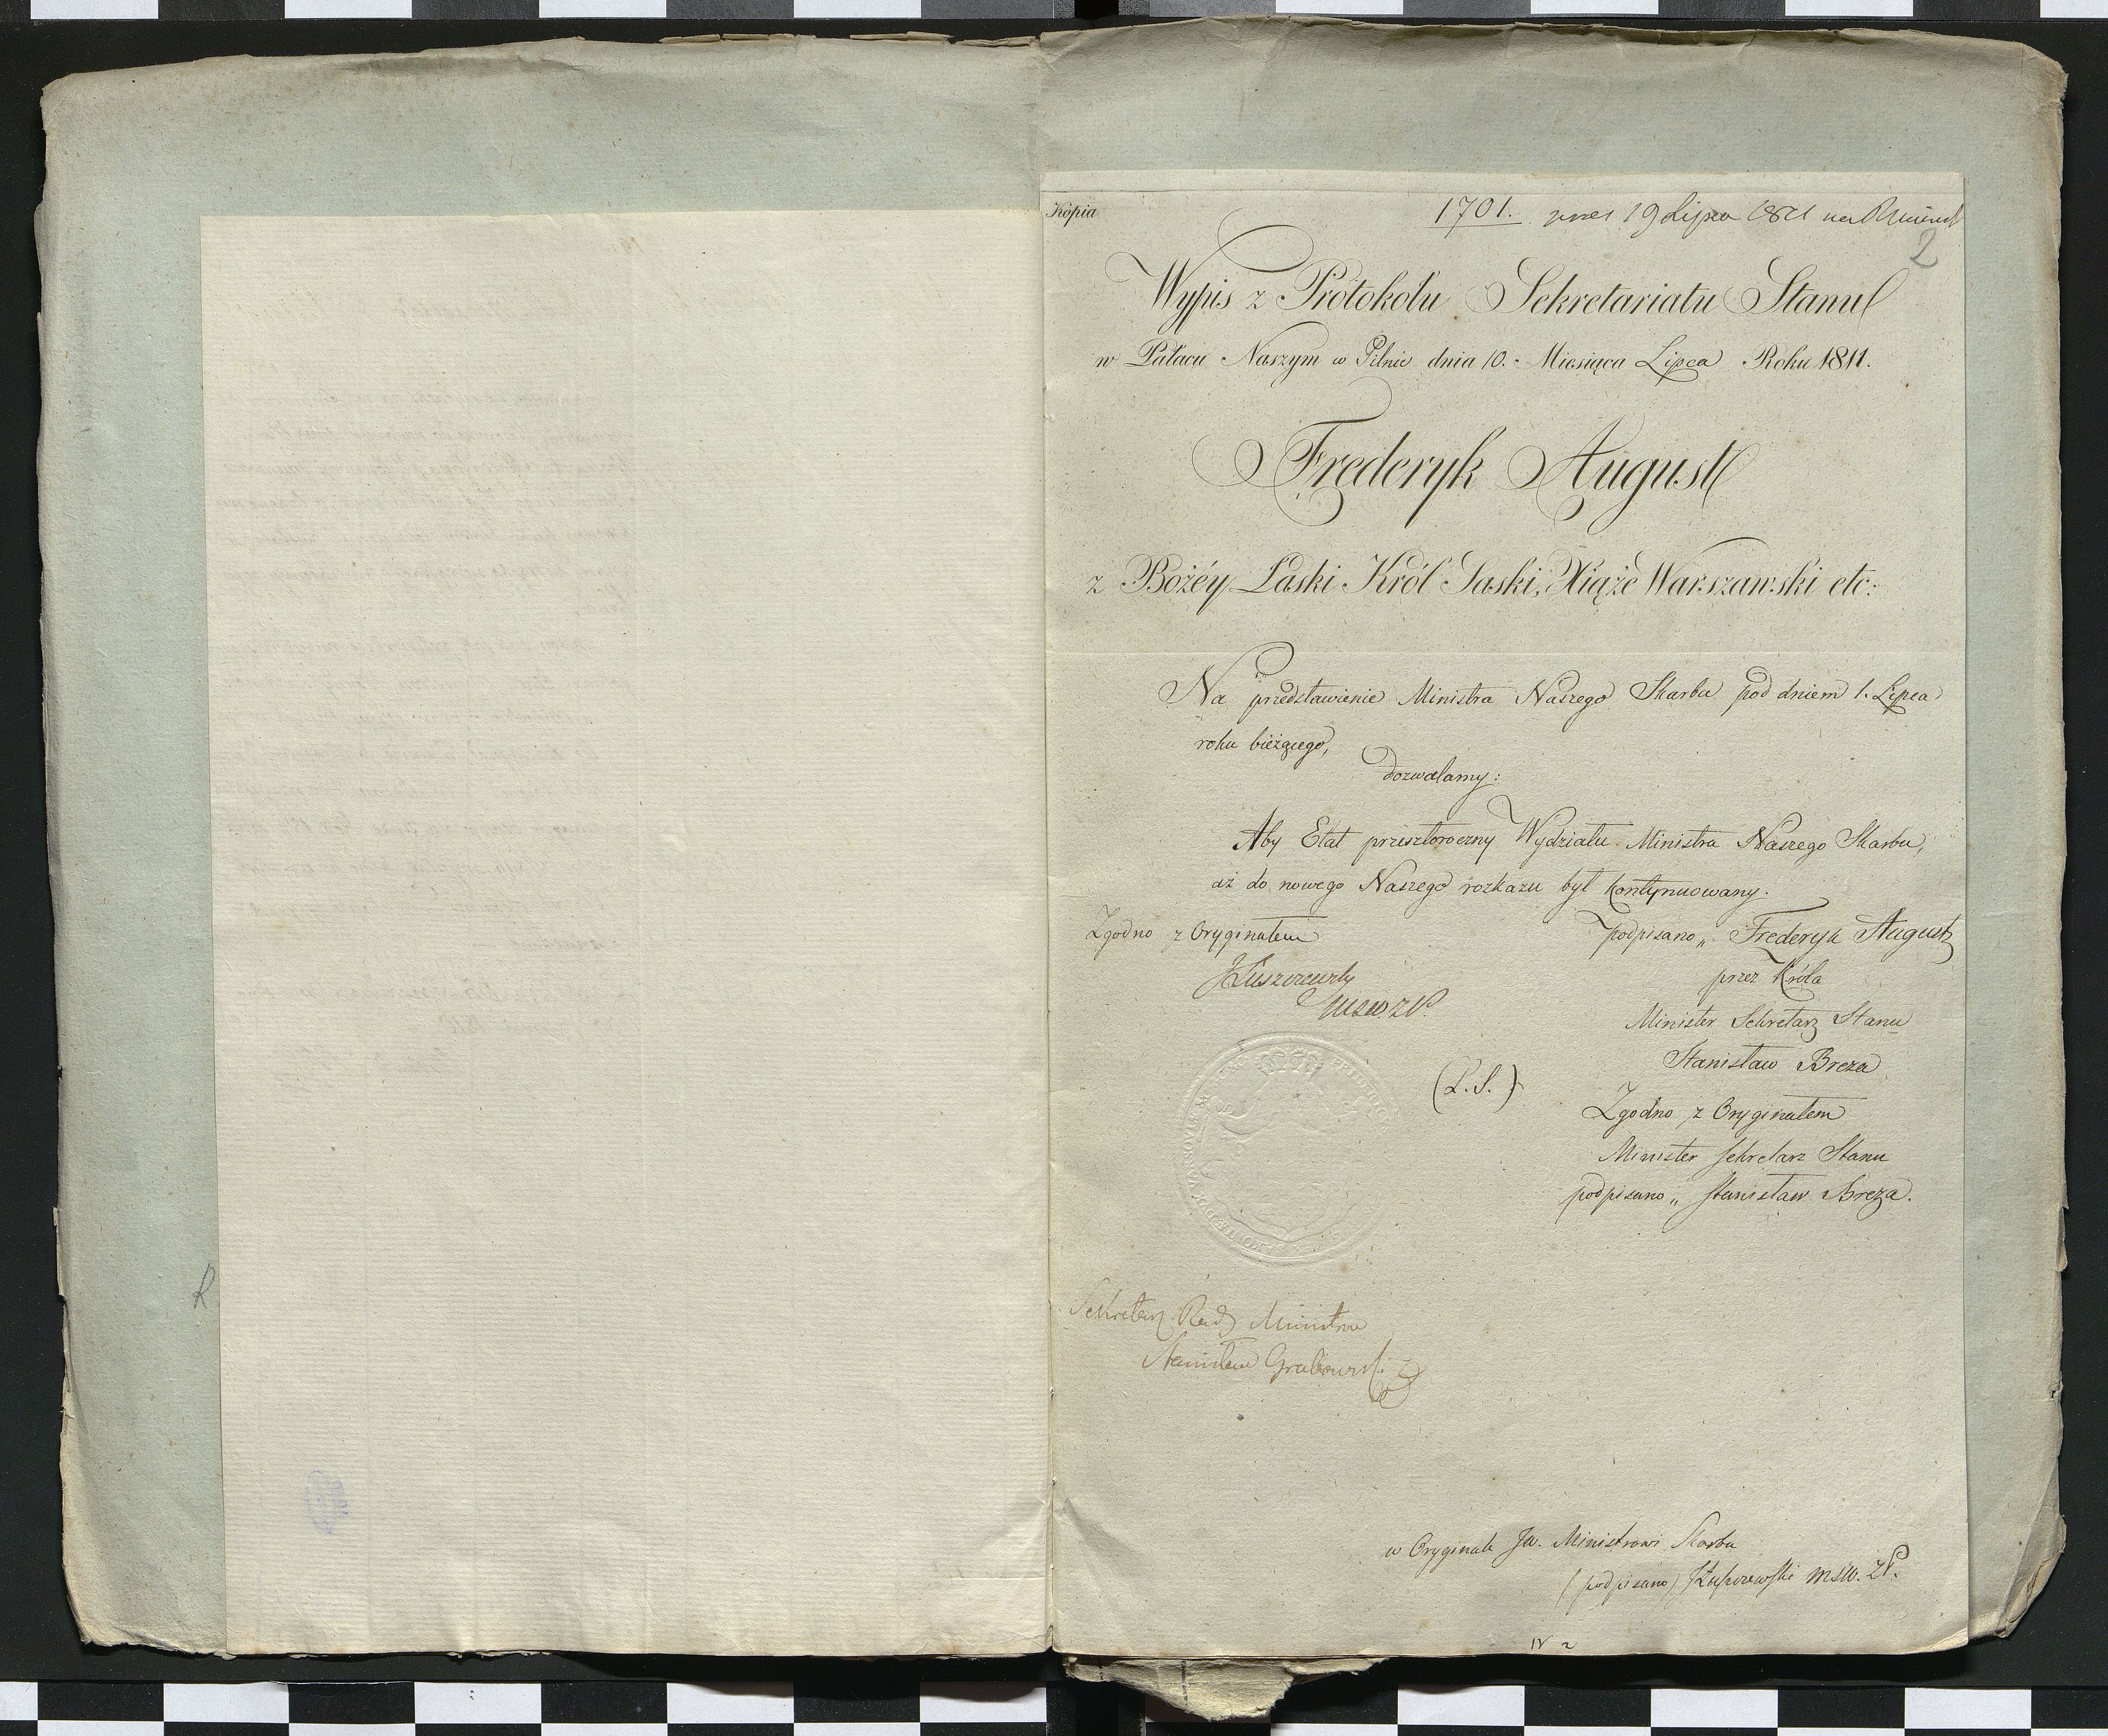 Kopia
1701. 19 Lipca 1811
2
Wypis z Protokołu Sekretariatu Stanu
w Pałacu Naszym w Pilnic dnia 10. Miesiąca Lipca Roku 1811.
Frederyk August
z Bożéy Łaski Król Saski, Xiąże Warszawski etc:
Na przedstawienie Ministra Naszego Skarbu pod dniem 1. Lipca
roku bieżącego,
dozwalamy:
Aby Etat przeszłoroczny Wydziału Ministra Naszego Skarbu,
aż do nowego Naszego rozkazu był kontynuowany.
Zgodno z Oryginałem
podpisano „ Frederyk August
przez Króla
Minister Sekretarz Stanu
Stanisław Breza
(L.S.)
Zgodno z Oryginałem
Minister Sekretarz Stanu
podpisano „ Stanisław Breza.
Sekretarz Rady Ministrów
Stanisław Grabowski
R
w Oryginale JW. Ministrowi Skarbu
(podpisano) Łuszczewski MSW. ZP.